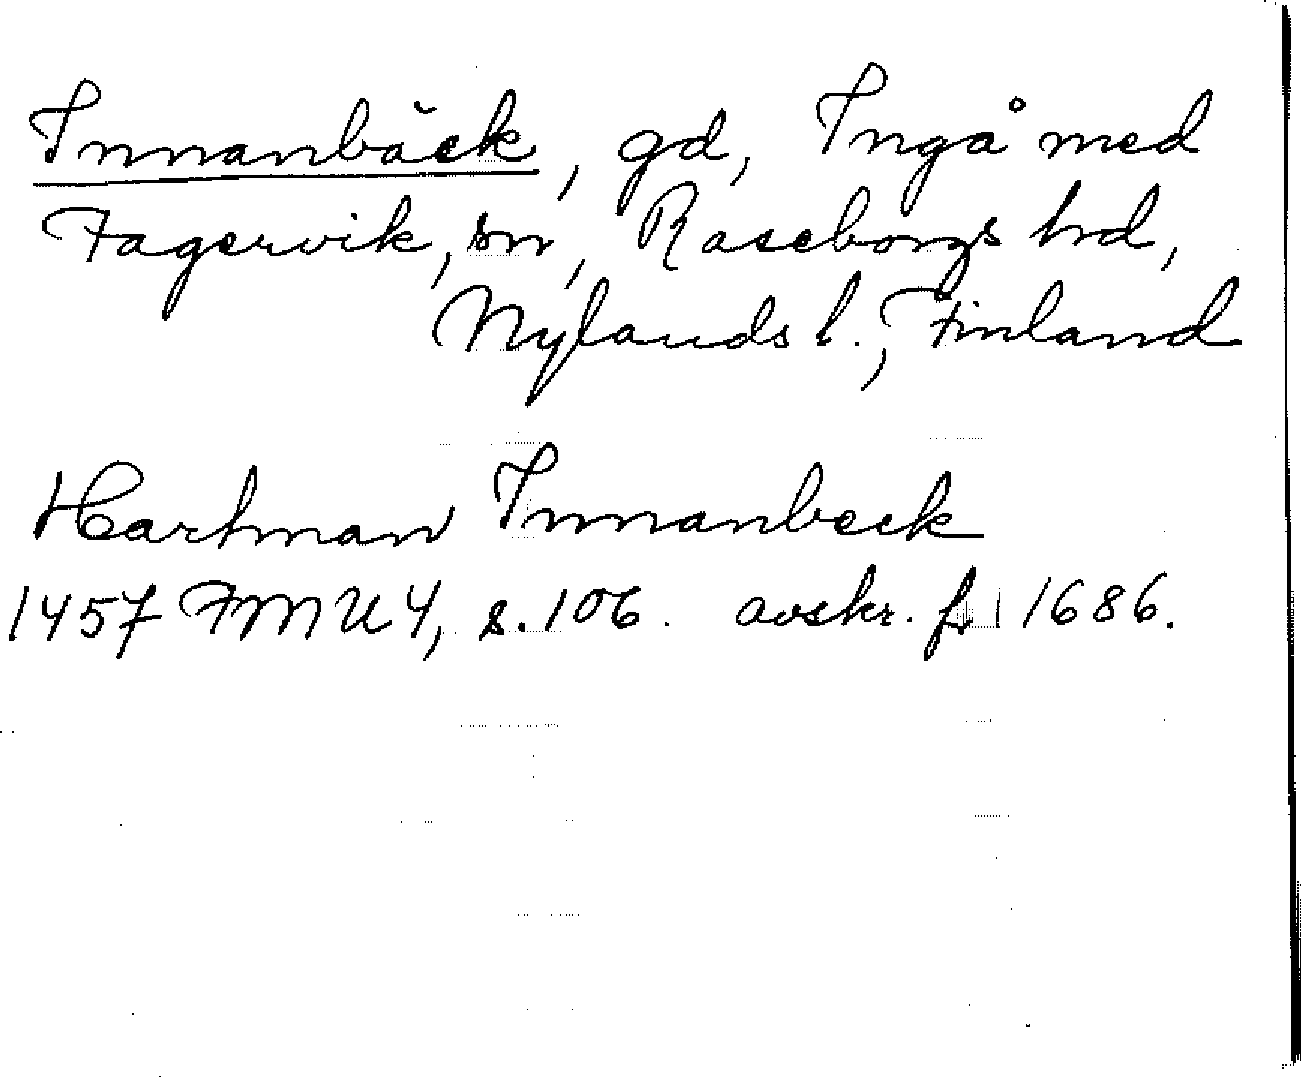 Innanbäck, gd, Ingå med
Fagervik, sn, Raseborgs hrd,
Nylands l., Finland
Hartman Innanbeck
1457 FMU 4, s. 106. avskr. fr 1686.